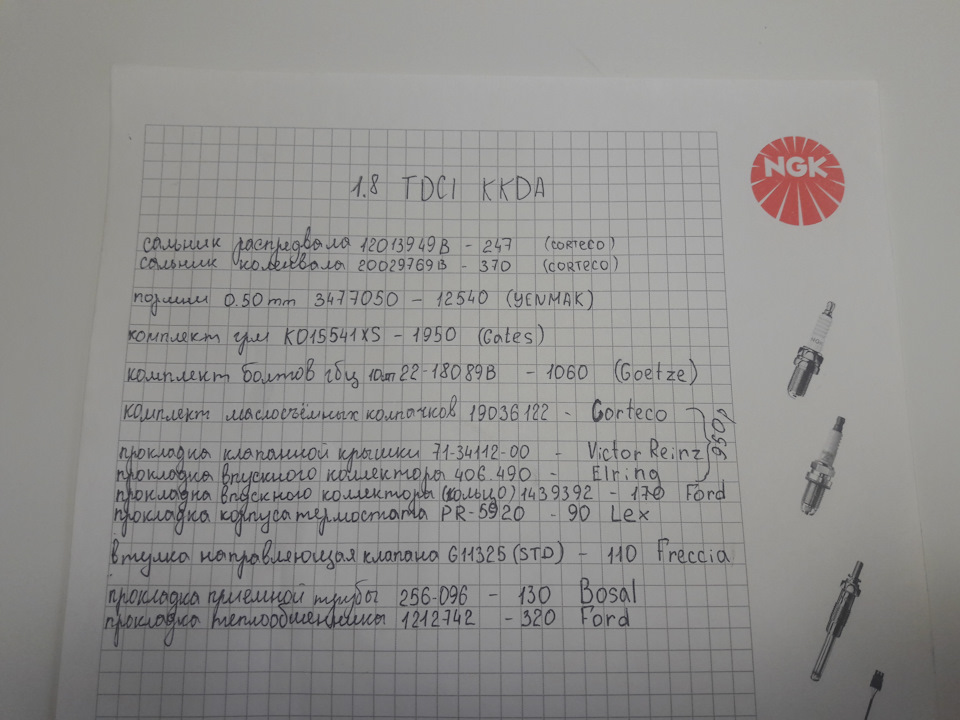 1.8 TDCI KKDA
NGK
сальник распредвала 12013949B - 247 (CORTECO)
сальник коленвала 20029769B - 370 (CORTECO)
поршни 0.50 mm 3477050 - 12540 (YENMAK)
NGK
комплект грм K015541XS - 1950 (Gates)
комплект болтов гбц 10шт 22-18089B - 1060 (Goetze)
комплект маслосъёмных колпачков 19036122 - Corteco
950р
прокладка клапанной крышки 71-34112-00 - Victor Reinz
прокладка впускного коллектора 406.490 - Elring
прокладка впускного коллектора (кольцо) 1439392 - 170 Ford
прокладка корпуса термостата PR-5920 - 90 Lex
втулка направляющая клапана G11325 (STD) - 110 Freccia
прокладка приемной трубы 256-096 - 130 Bosal
прокладка теплообменника 1212742 - 320 Ford